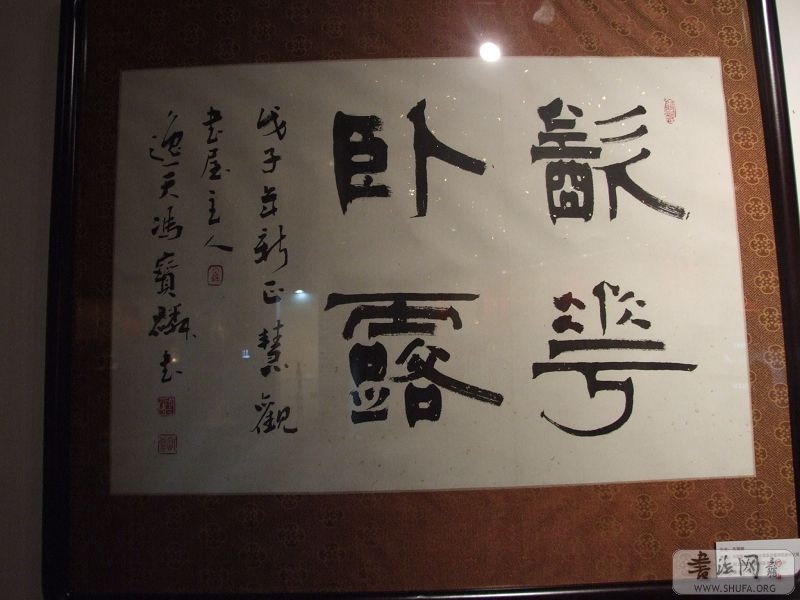 華
卧露
戊子年新正慧觀
書屋主人
逸天馮寶麟書
书法网
WWW.SHUFA.ORG